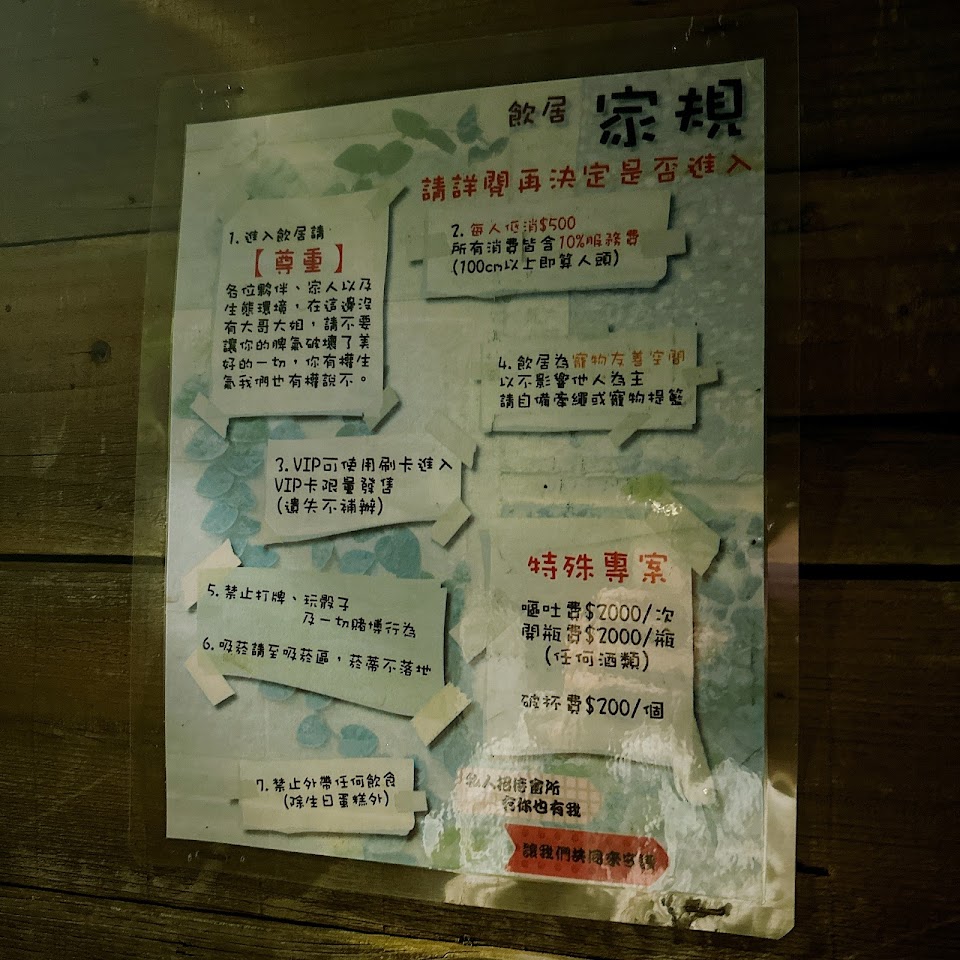 飲居 家規
請詳閱再決定是否進入
1. 進入飲居請
【尊重】
各位夥伴、家人以及
生態環境，在這邊沒
有大哥大姐，請不要
讓你的脾氣破壞了美
好的一切，你有權生
氣我們也有權說不。
2. 每人低消$500
所有消費皆含10%服務費
(100cm以上即算人頭)
3. VIP可使用刷卡進入
VIP卡限量發售
(遺失不補辦)
4. 飲居為寵物友善空間
以不影響他人為主
請自備牽繩或寵物提籃
5. 禁止打牌、玩骰子
及一切賭博行為
6. 吸菸請至吸菸區，菸蒂不落地
7. 禁止外帶任何飲食
(除生日蛋糕外)
特殊專案
嘔吐費$2000/次
開瓶費$2000/瓶
(任何酒類)
破杯費$200/個
私人招待窗所
有你也有我
讓我們共同來守護